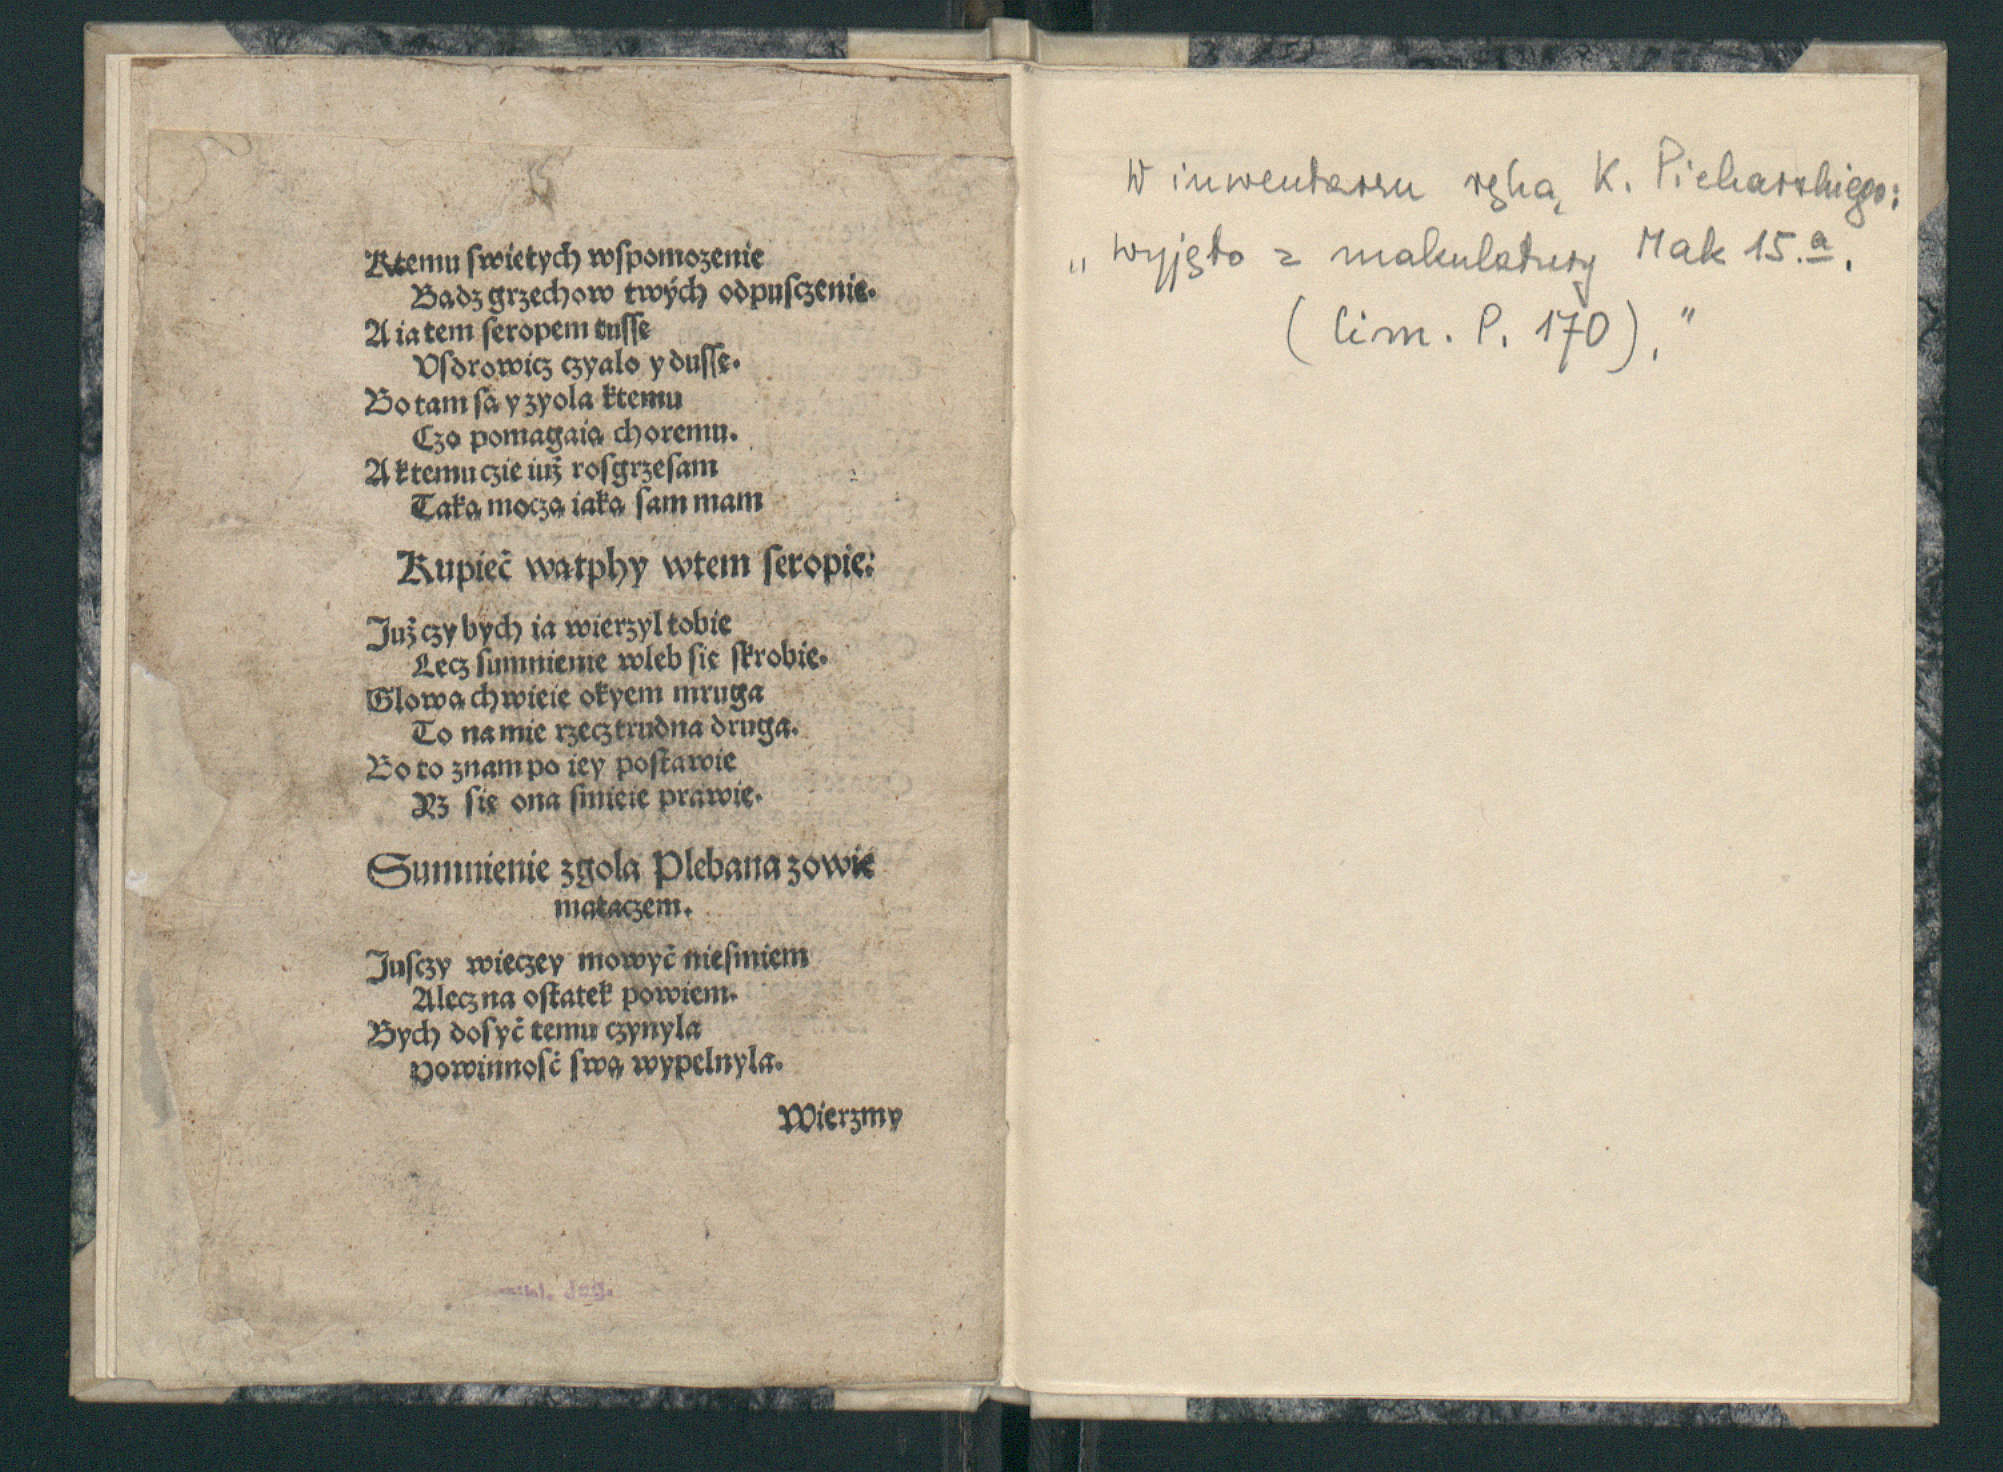 Ktemu swietych wspomozenie
Bądz grzechow twych odpusczenie.
A ia tem seropem tusse
Vsdrowicz czyalo y dusse.
Bo tam są y zyola ktemu
Czo pomagaią choremu.
A ktemu czie iuż rosgrzesam
Taką moczą iaką sam mam
Kupieć wątphy wtem seropie:
Już czy bych ia wierzyl tobie
Lecz sumnienie wleb się skrobie.
Glową chwieie okyem mruga
To na mie rzecz trudna druga.
Bo to znam po iey postawie
Yż się ona smieie prawie.
Sumnienie zgola Plebana zowie
mataczem.
Jusczy wieczey mowyć niesmiem
Alecz na ostatek powiem.
Bych dosyć temu czynyla
Powinnosć swą wypelnyla.
Wierzmy
Jag.
W inwentarzu ręką K. Piekarskiego:
„wyjęto z makulatury Mak 15.a.
(Cim. P. 170)."